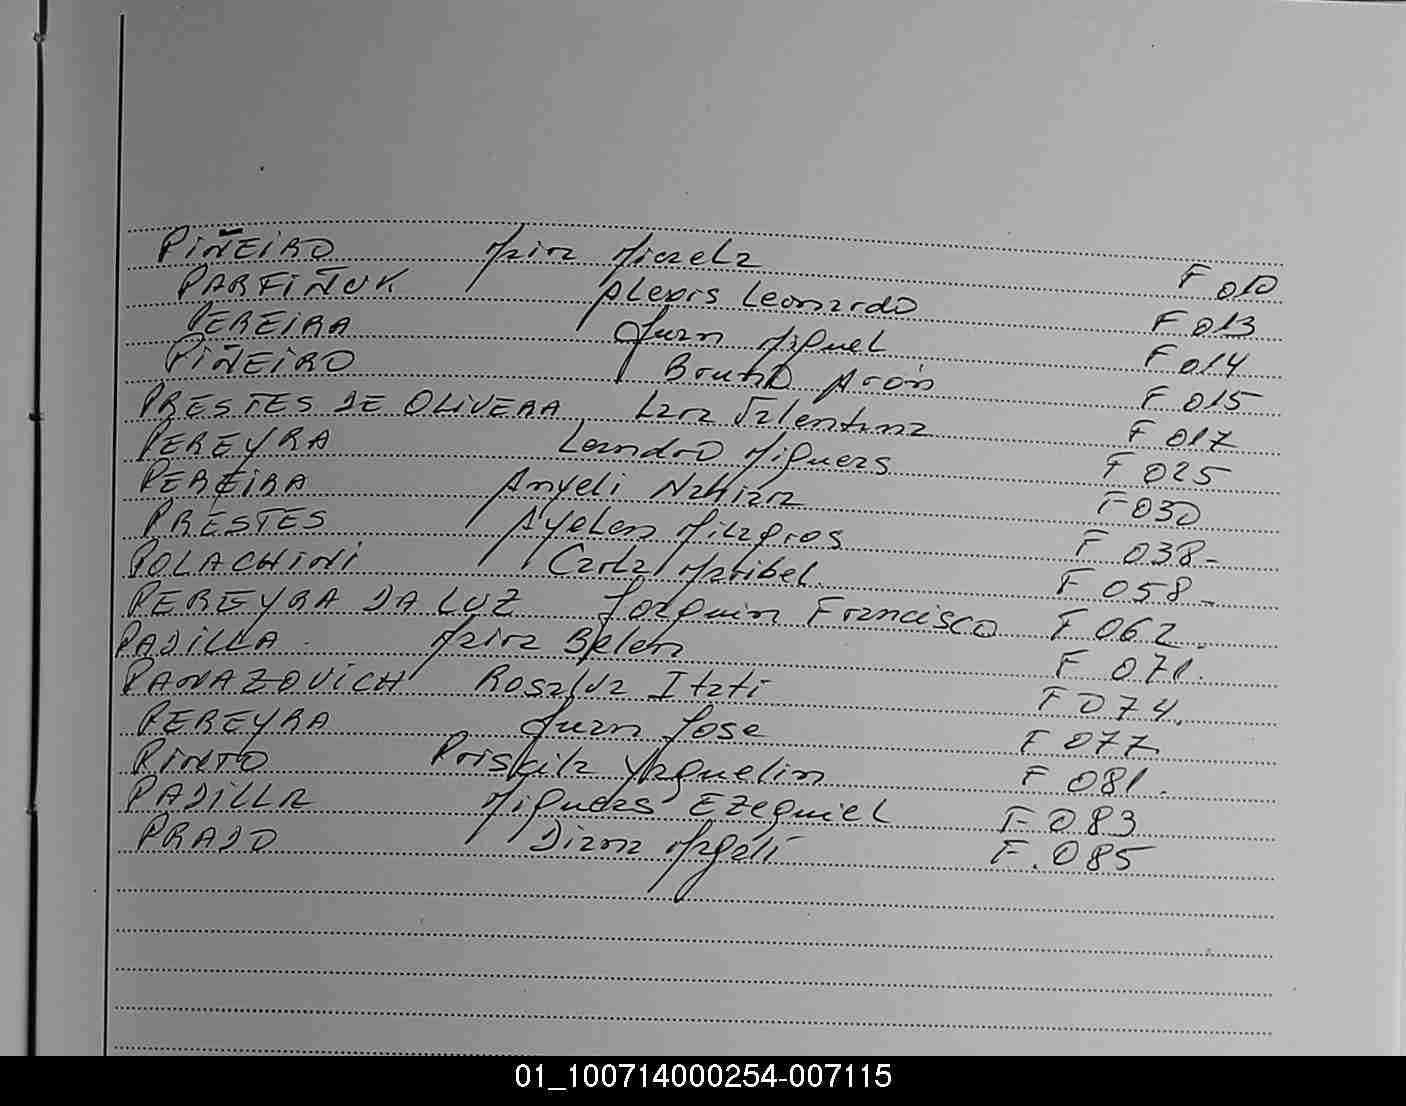 PIÑEIRO Maira Micaela F 010
PARFIÑUK Alexis Leonardo F 013
PEREIRA Juan Miguel F 014
PIÑEIRO Bruno Arón F 015
PRESTES DE OLIVERA Lara Valentina F 017
PEREYRA Leandro Miqueas F 025
PEREIRA Anyeli Nahiara F 030
PRESTES Ayelen Milagros F 038-
POLACHINI Carla Maribel F 058-
PEREYRA DA LUZ Joaquin Francisco F 062.
PADILLA Maira Belen F 071.
PANAZOVICH Rosalva Itati F 074.
PEREYRA Juan Jose F 077
PINTO Priskila Yaquelin F 081.
PADILLA Miqueas Ezequiel F 083
PRADO Diana Magalí F. 085
01_100714000254-007115